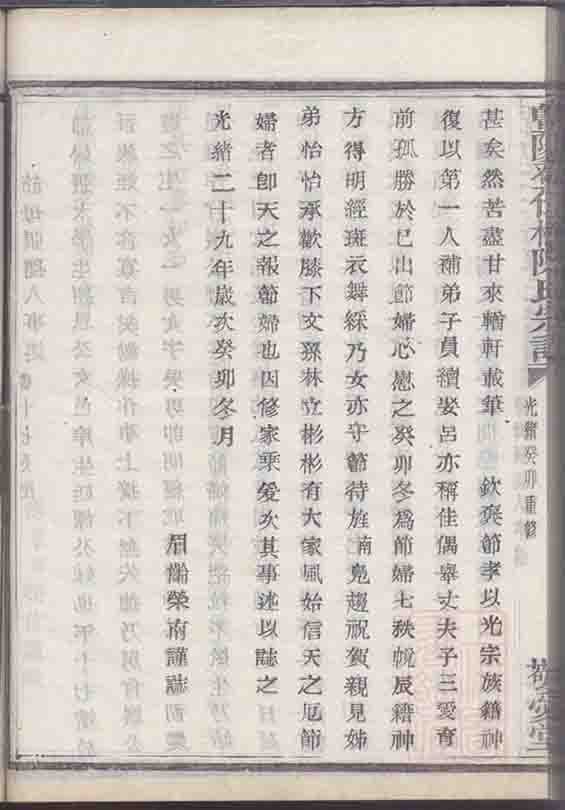 陳氏宗譜
光緒癸卯重修
甚矣然苦盡甘來輶軒載筆 欽褒節孝以光宗族籍紳
復以第一人補弟子員續娶呂亦稱佳偶舉丈夫子三愛育
前孤勝於已出節婦心慰之癸卯冬為節婦七秩帨辰籍紳
方得明經斑衣舞綵乃女亦守節待旌 南鳧趨祝賀親見姊
弟怡怡承歡膝下文孫林立彬彬有大家風始信天之厄節
婦者卽天之報節婦也因修家乘爰次其事述以誌之
光緒二十九年歲次癸卯冬月
榮南謹誌